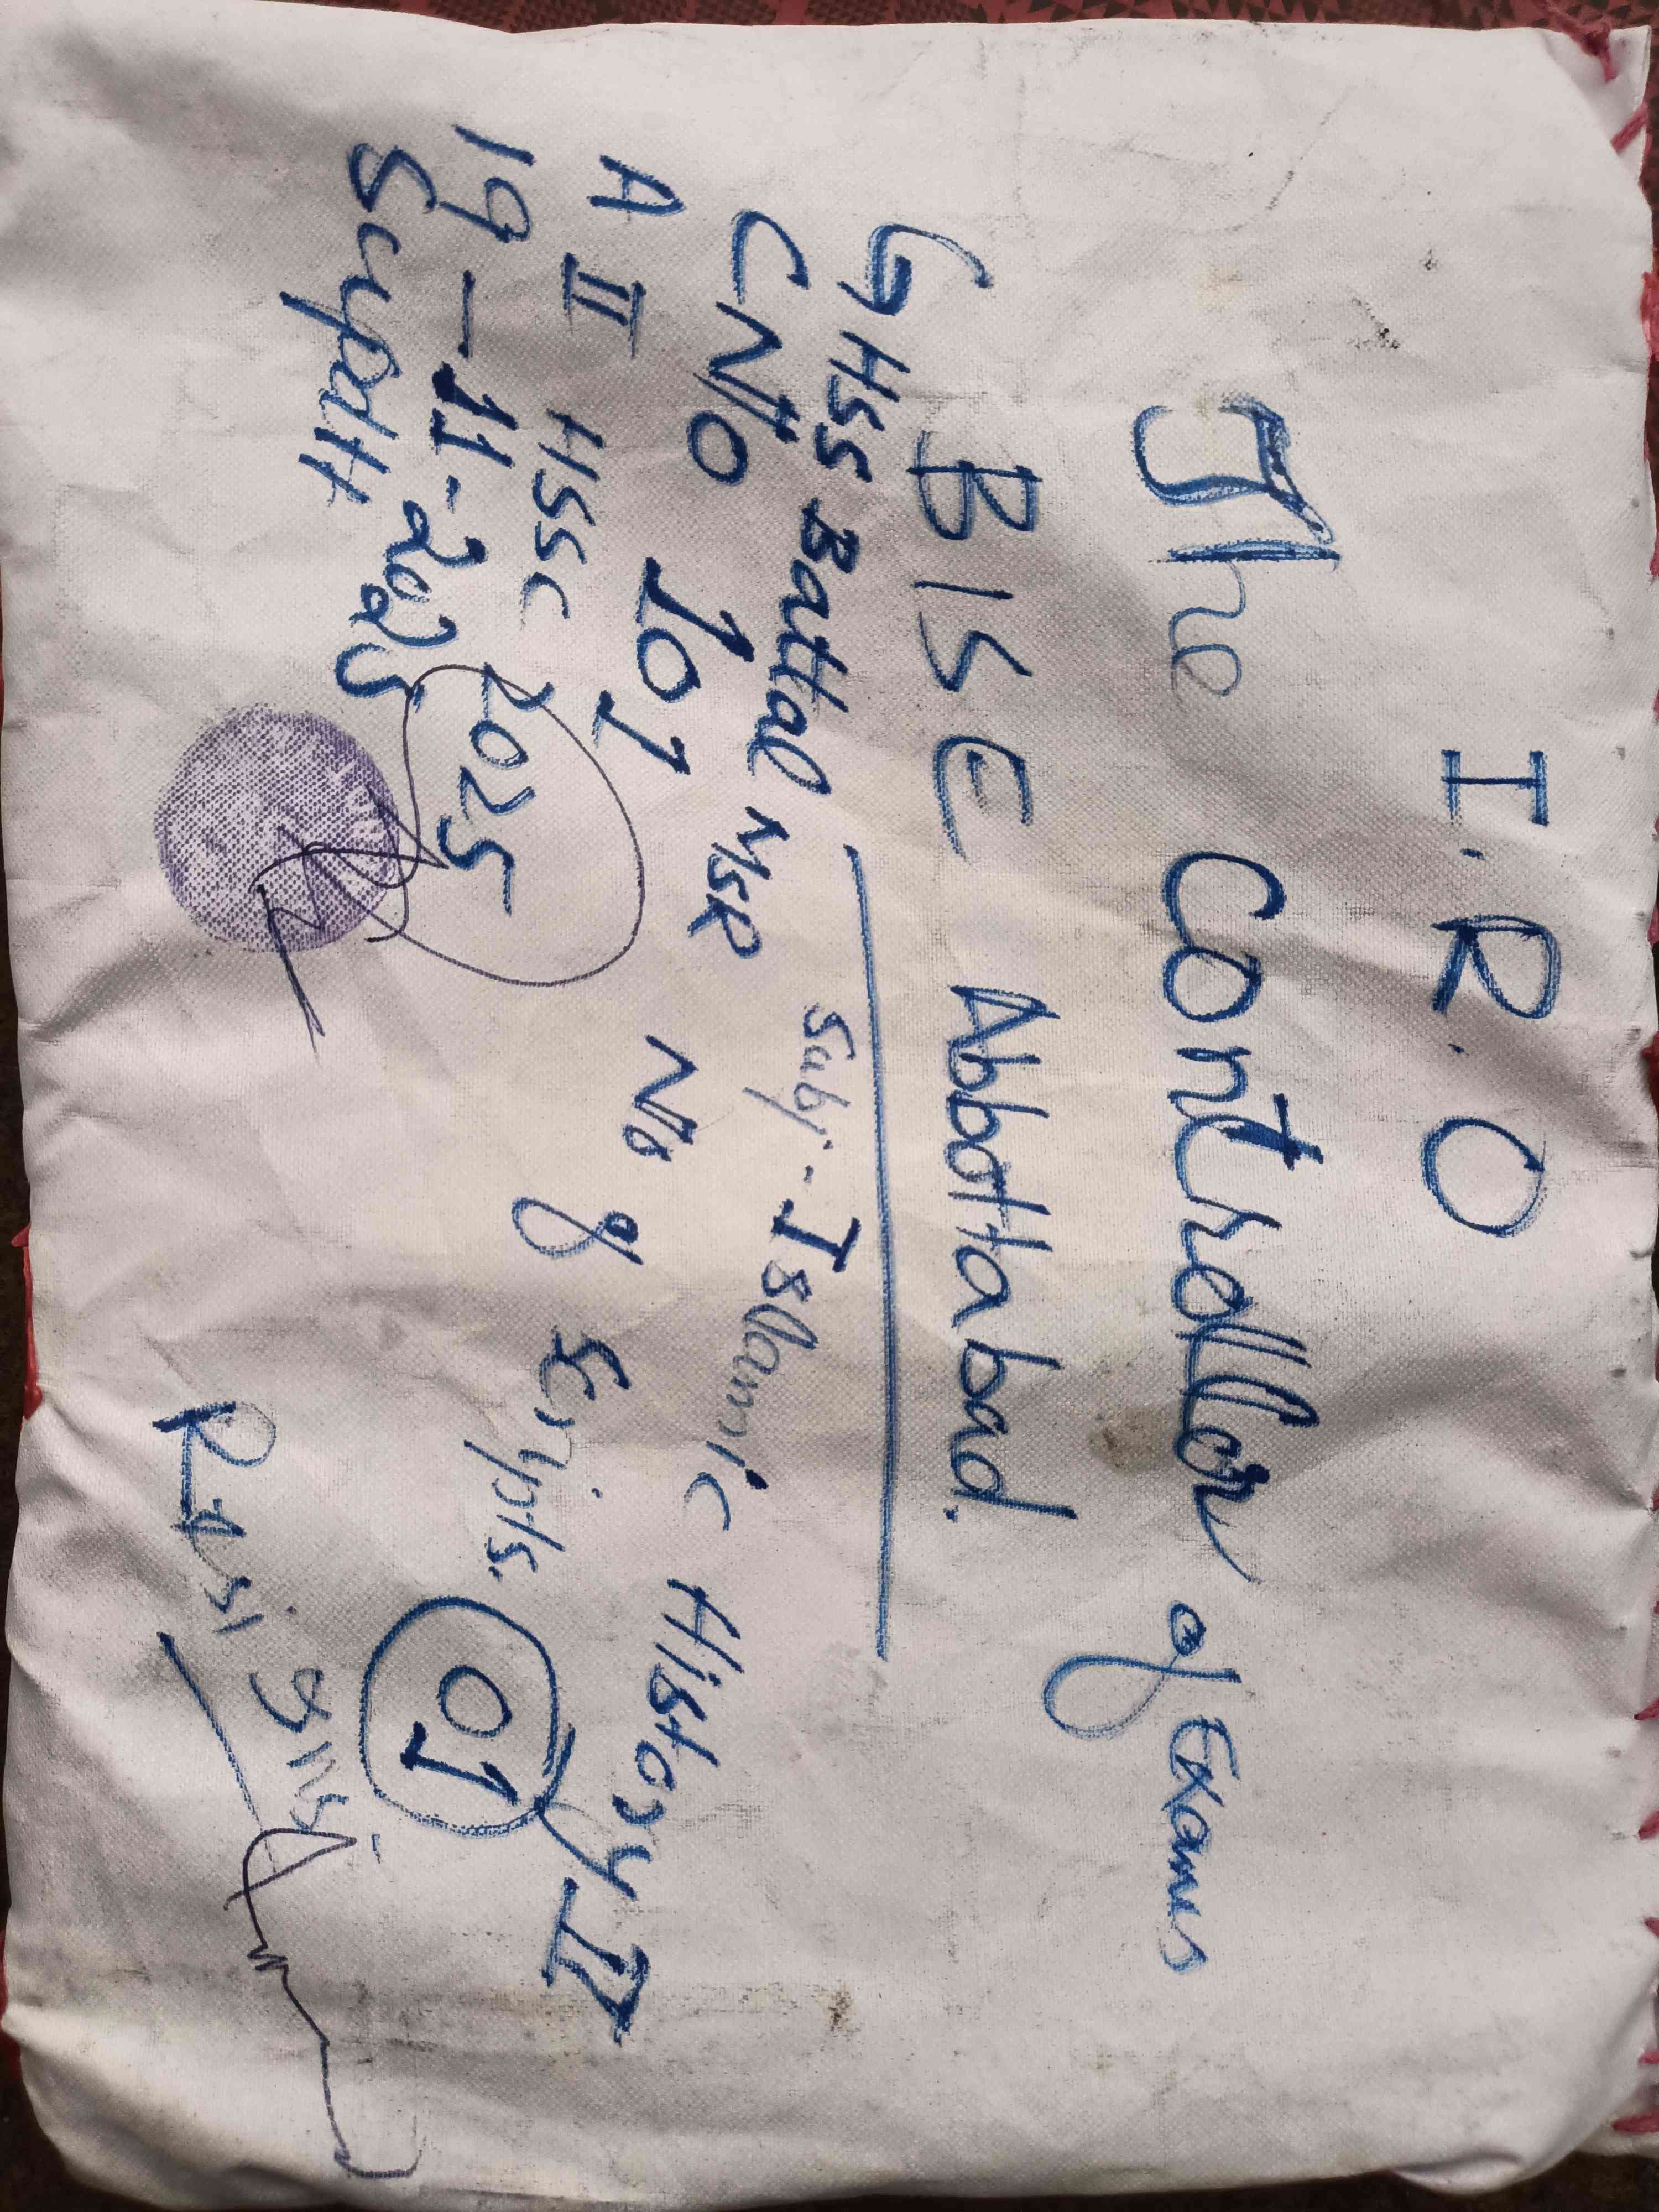 I.R.O
The Controller of Exams
BISE Abbottabad.
GHSS Battal MSR
CNo 101
A II HSSC 2025
19-11-2025
Supdtt
Subj:- Islamic History II
No of Scripts. 01